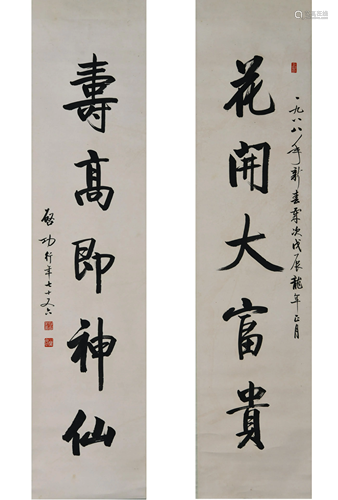 花開大富貴
一九八八年新春歲次戊辰龍年正月
壽高即神仙
啓功行年七十又六